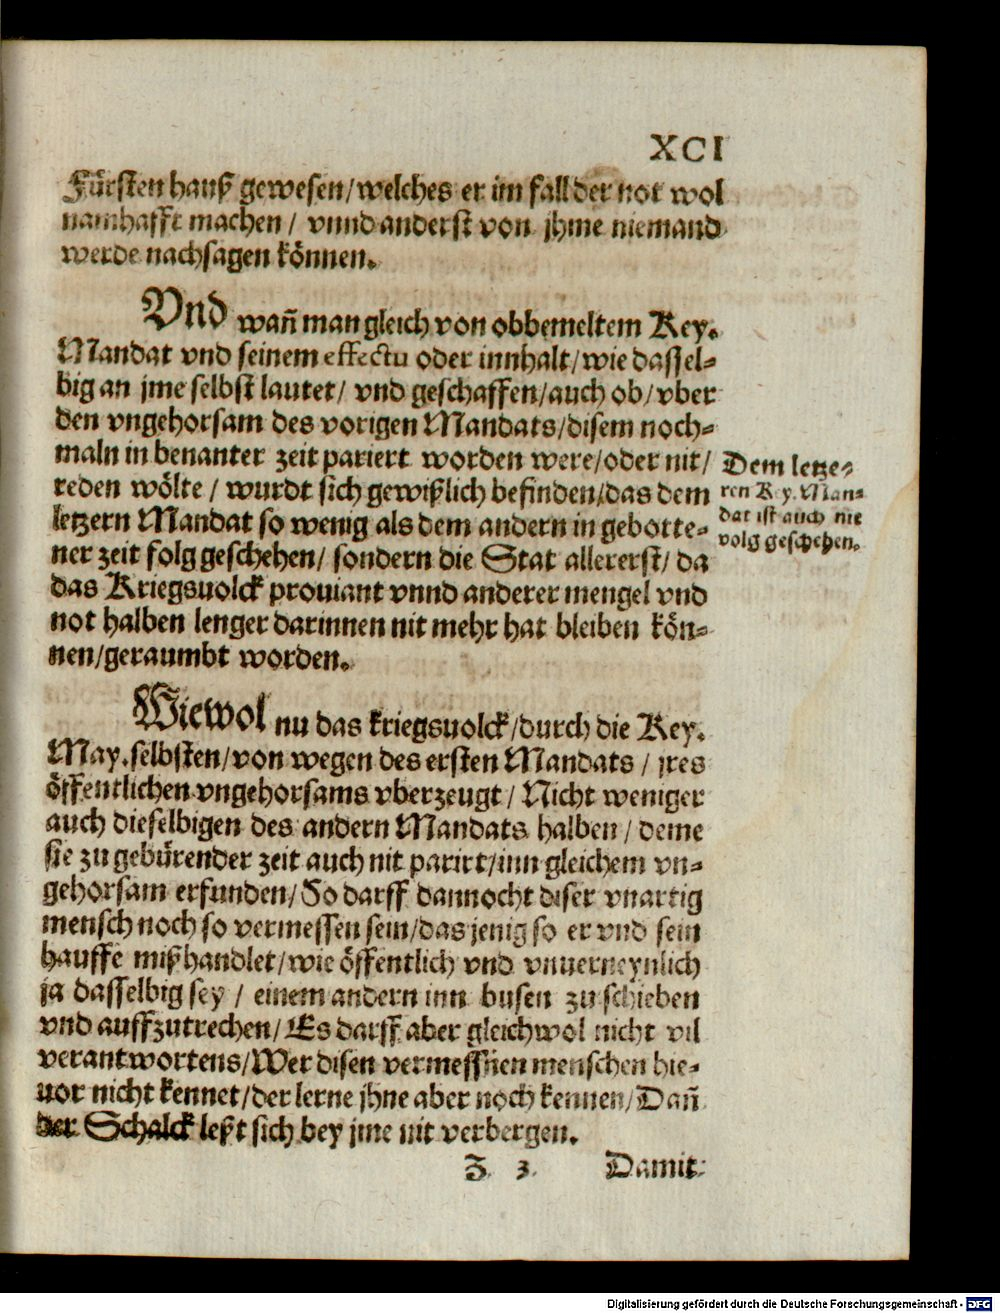 XCI
Fürsten hauß gewesen/welches er im fall der not wol
namhafft machen / vnnd anderst von jhme niemand
werde nachsagen können.
Vnd wañ man gleich von obbemeltem Key.
Mandat vnd seinem effectu oder innhalt/wie dassel-
big an jme selbst lautet/ vnd geschaffen/auch ob/vber
den vngehorsam des vorigen Mandats/disem noch-
maln in benanter zeit pariert worden were/oder nit/
reden wölte / wurdt sich gewißlich befinden/das dem
letzern Mandat so wenig als dem andern in gebotte-
ner zeit folg geschehen/ sondern die Stat allererst/ da
das Kriegsuolck prouiant vnnd anderer mengel vnd
not halben lenger darinnen nit mehr hat bleiben kön-
nen/geraumbt worden.
Dem letze-
ren Key. Man-
dat ist auch nie
volg geschehen.
Wiewol nu das kriegsuolck/durch die Key.
May.selbsten/von wegen des ersten Mandats / jres
öffentlichen vngehorsams vberzeugt / Nicht weniger
auch dieselbigen des andern Mandats halben / deme
sie zu gebürender zeit auch nit parirt/inn gleichem vn-
gehorsam erfunden/So darff dannocht diser vnartig
mensch noch so vermessen sein/das jenig so er vnd sein
hauffe mißhandlet/wie öffentlich vnd vnuerneynlich
ja dasselbig sey / einem andern inn busen zu schieben
vnd auffzutrechen/Es darff aber gleichwol nicht vil
verantwortens/Wer disen vermessnen menschen hie-
uor nicht kennet/der lerne jhne aber noch kennen/Dañ
der Schalck leßt sich bey jme nit verbergen.
Z 3 Damit
Digitalisierung gefördert durch die Deutsche Forschungsgemeinschaft - DFG